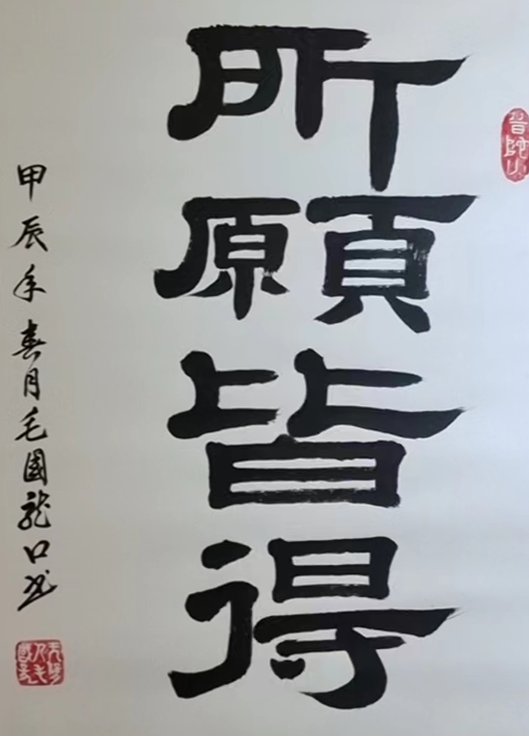 所願皆得
甲辰年春月毛國龍口書